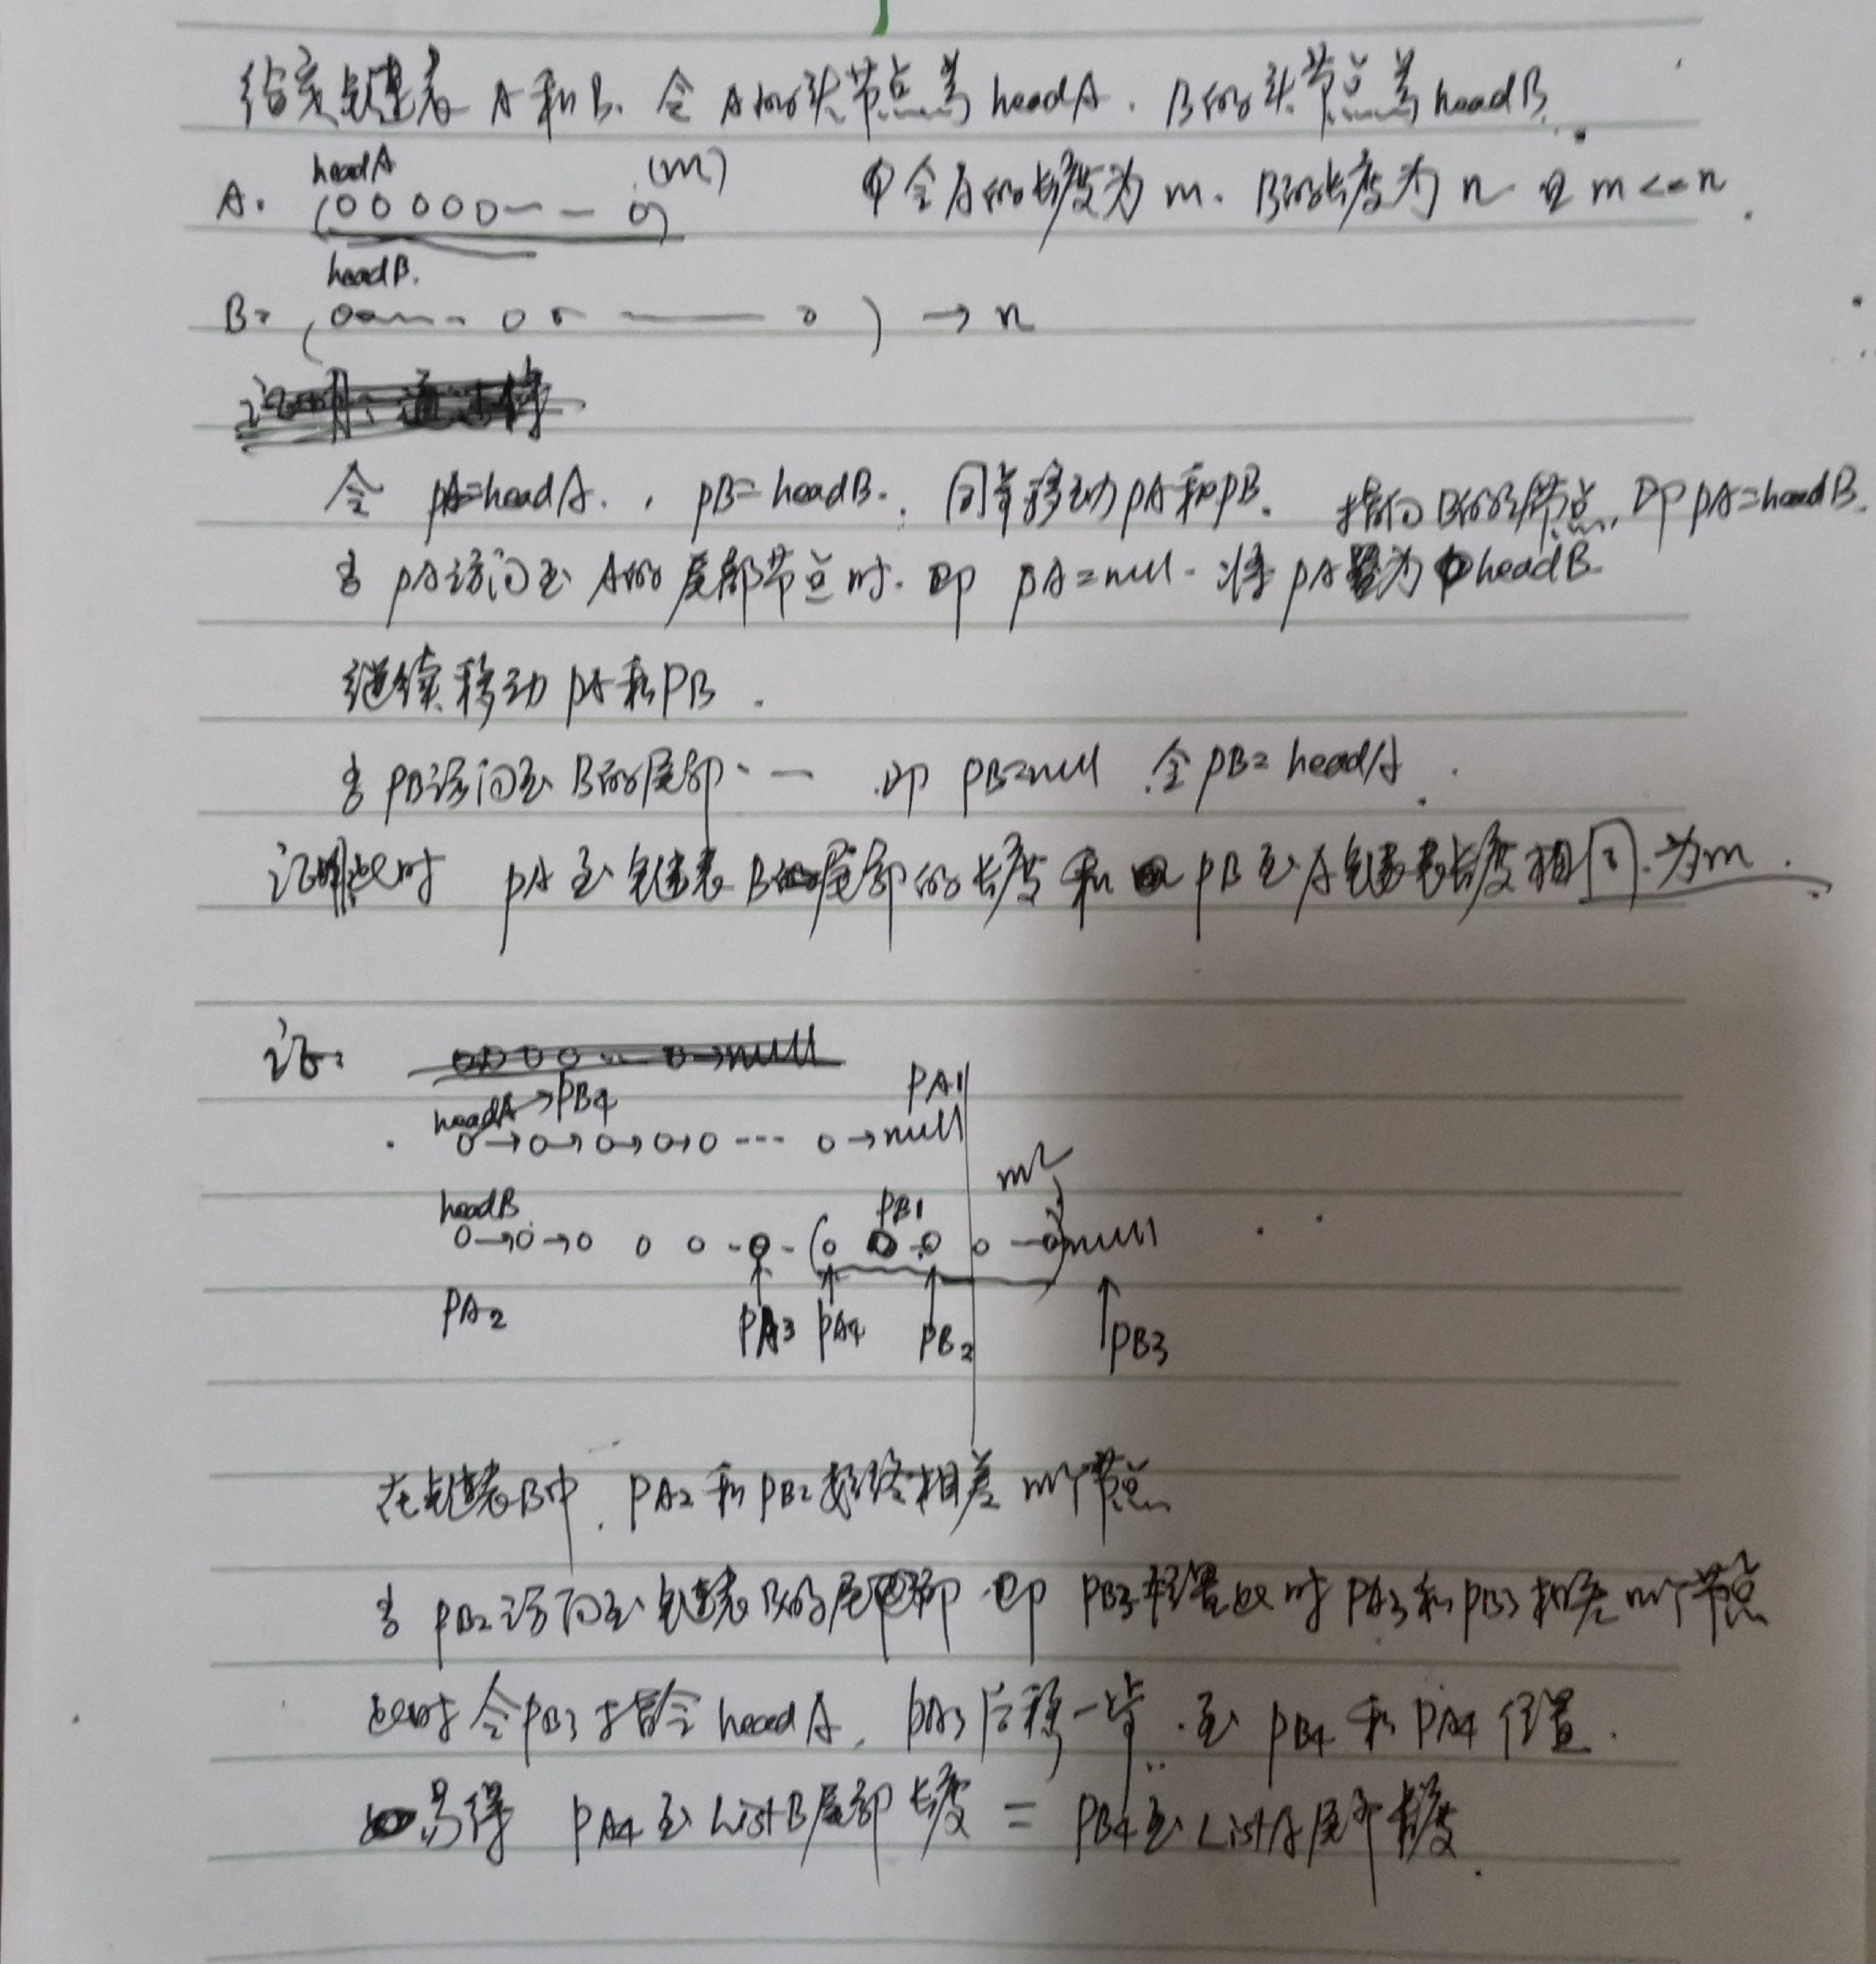 给定链表 A和B. 令 A的头节点为 headA. B的头节点为headB.
headA (m) 令A的长度为 m. B的长度为 n 且 m<=n.
A. (00000-- 0)
headB.
B: (0 -- 0 0 —— 0 ) → n
令 pA=headA. , pB=headB. 同步移动pA和pB. 指向B的头节点, 即pA=headB.
当 pA访问至 A的尾部节点时. 即 pA=null. 将 pA置为 headB.
继续移动 pA和PB.
当 PB访问至 B的尾部 -- 即 PB=null 令PB=headA.
证明此时 pA至链表B的尾部的长度和 PB至A链表长度相同. 为m.
证:
headA→PB4 PA1
0→0→0→0→0 --- 0→null
m
headB PB1
0→0→0 0 0 -0-(0 0-0 0 —0)null
PA2 PA3 PA4 PB2 PB3
在链表B中, PA2和PB2始终相差 m个节点
当 PB2访问至链表B的尾部 即 PB3位置此时 PA3和PB3相差 m个节点
此时 令PB3指令 headA, PA3后移一步. 至 PB4 和 PA4 位置.
易得 PA4至ListB尾部长度 = PB4至ListA尾部长度.